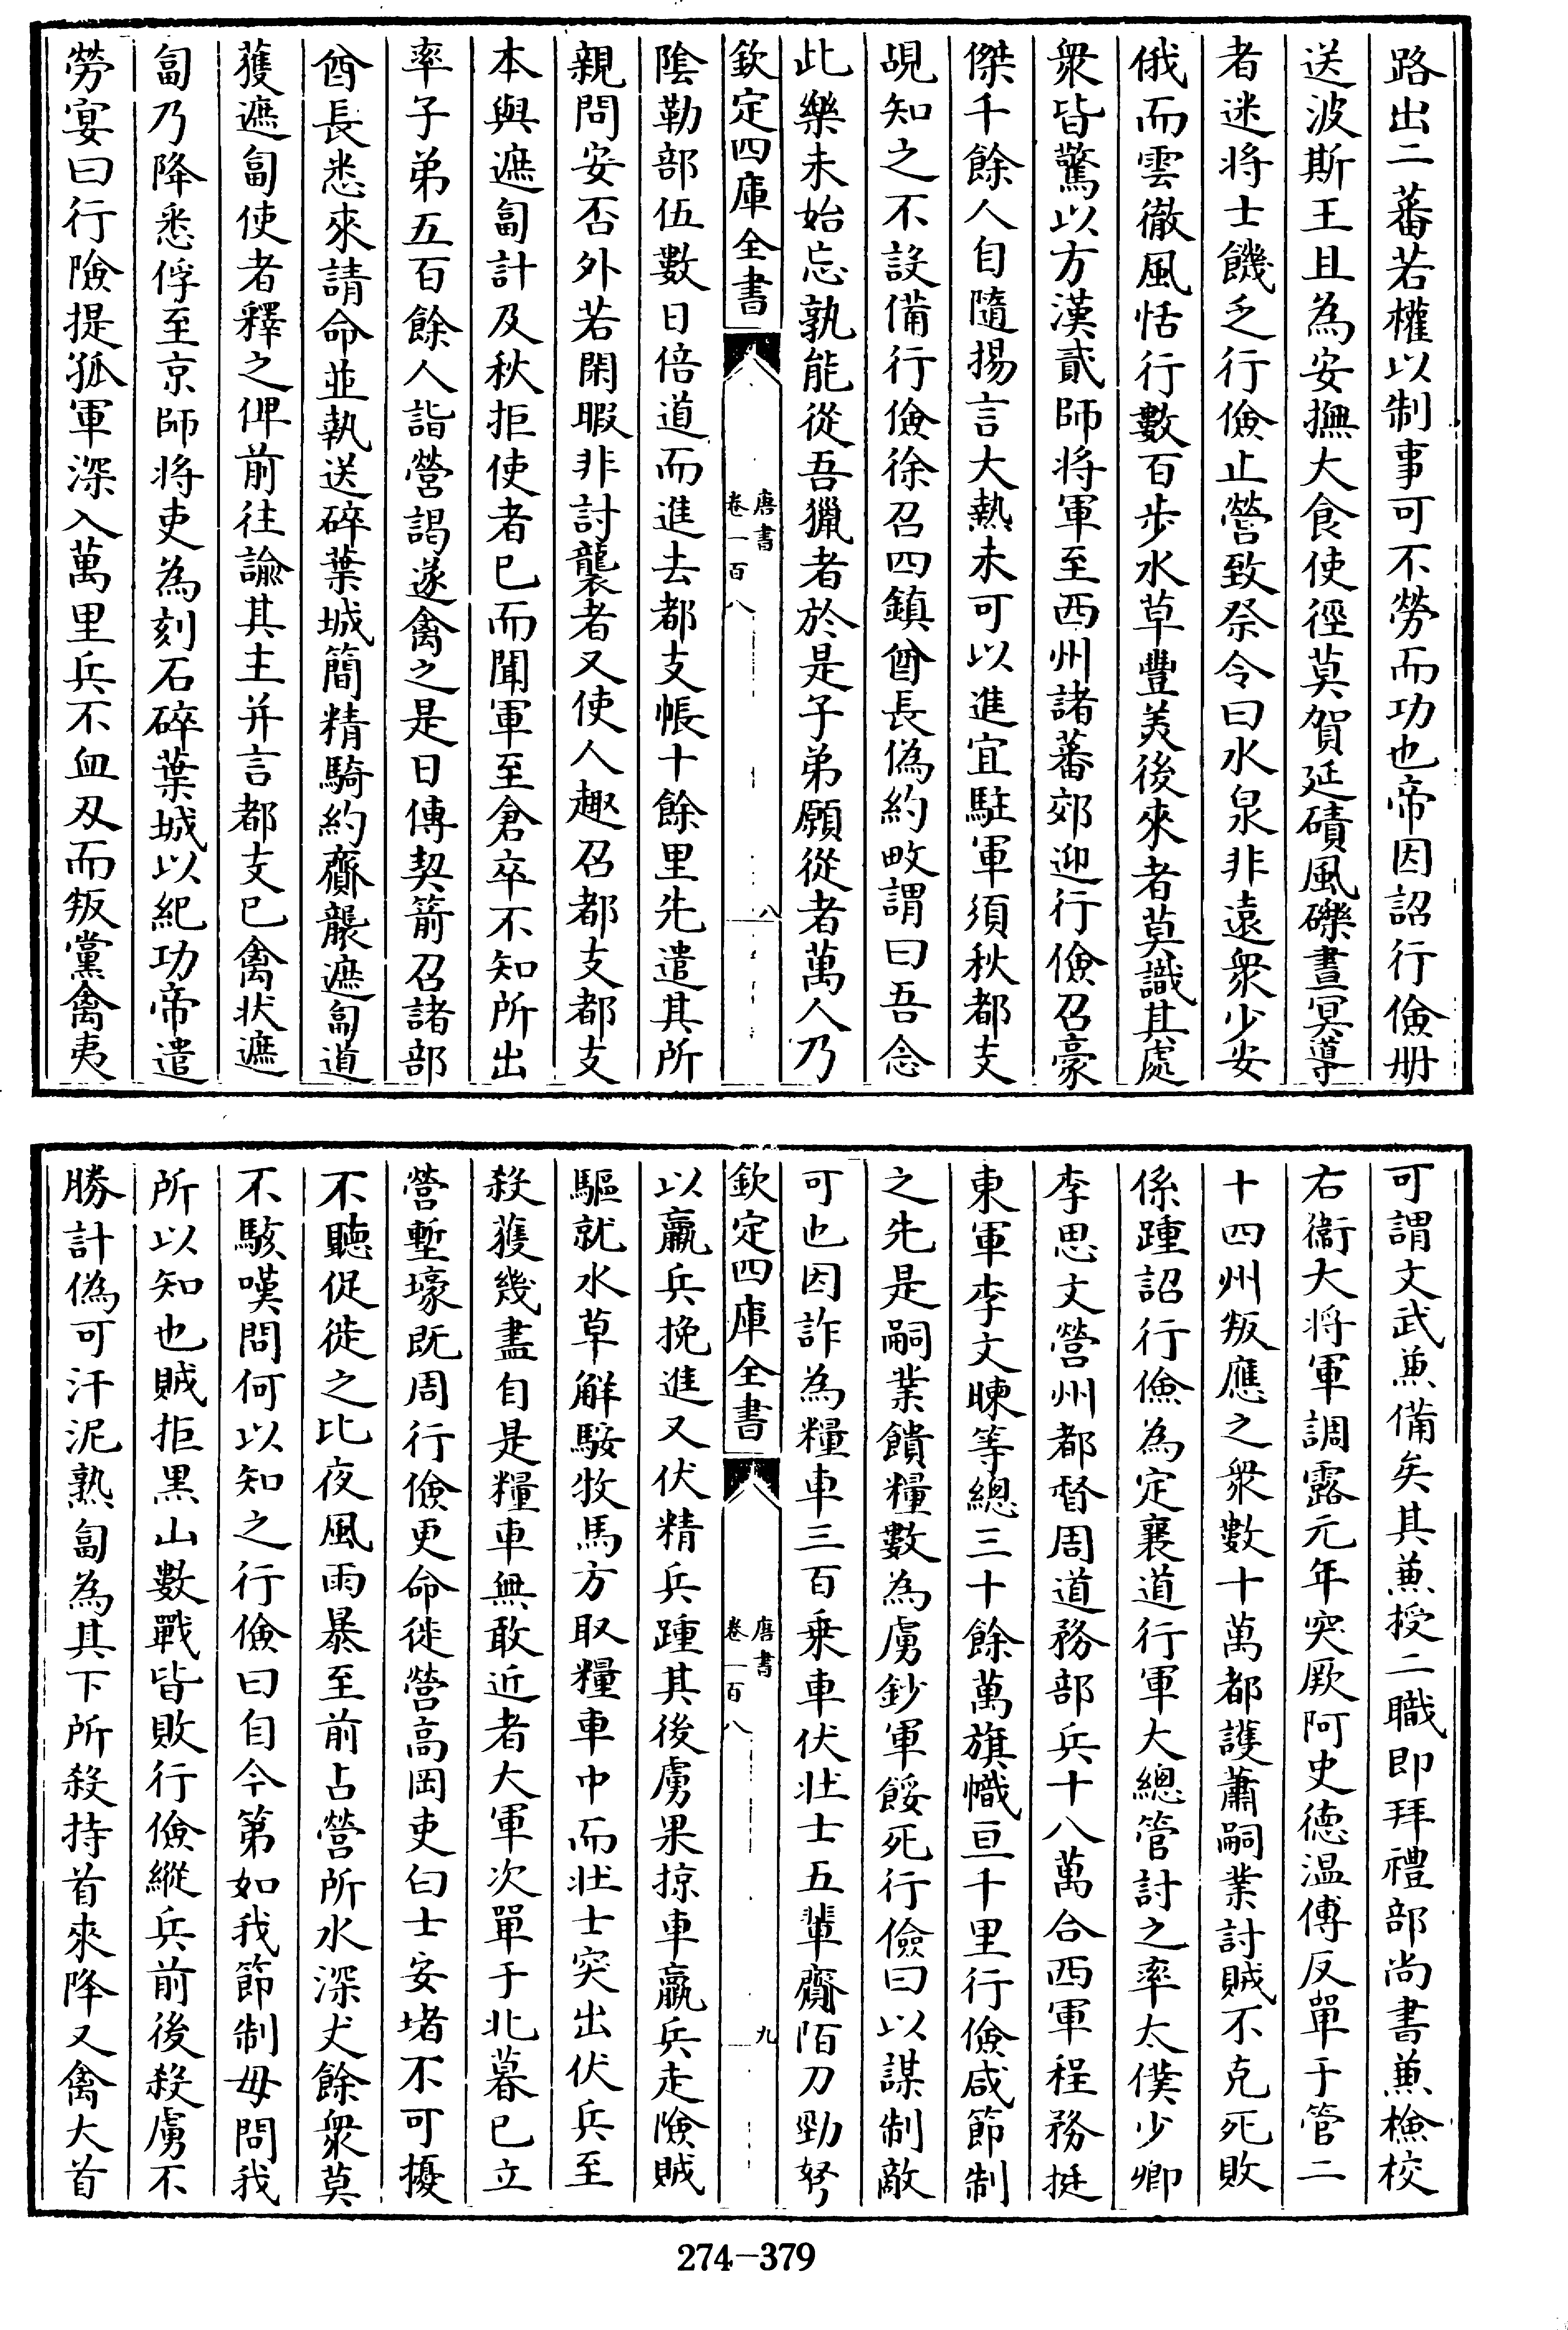 路出二蕃若權以制事可不勞而功也帝因詔行儉册
送波斯王且為安撫大食使徑莫賀延磧風礫晝冥導
者迷将士饑乏行儉止營致祭令曰水泉非遠衆少安
俄而雲徹風恬行數百步水草豐美後來者莫識其處
衆皆驚以方漢貳師将軍至西州諸蕃郊迎行儉召豪
傑千餘人自隨揚言大熱未可以進宜駐軍須秋都支
覘知之不設備行儉徐召四鎮酋長偽約畋謂曰吾念
此樂未始忘孰能從吾獵者於是子弟願從者萬人乃
欽定四庫全書
唐書
卷一百八
八
陰勒部伍數日倍道而進去都支帳十餘里先遣其所
親問安否外若閑暇非討襲者又使人趣召都支都支
本與遮匐計及秋拒使者已而聞軍至倉卒不知所出
率子弟五百餘人詣營謁遂禽之是日傳契箭召諸部
酋長悉來請命並執送碎葉城簡精騎約齎襲遮匐道
獲遮匐使者釋之俾前往諭其主并言都支已禽狀遮
匐乃降悉俘至京師将吏為刻石碎葉城以紀功帝遣
勞宴曰行險提孤軍深入萬里兵不血刃而叛黨禽夷
可謂文武兼備矣其兼授二職即拜禮部尚書兼檢校
右衞大将軍調露元年突厥阿史徳温傅反單于管二
十四州叛應之衆數十萬都護蕭嗣業討賊不克死敗
係踵詔行儉為定襄道行軍大總管討之率太僕少卿
李思文營州都督周道務部兵十八萬合西軍程務挺
東軍李文暕等總三十餘萬旗幟亘千里行儉咸節制
之先是嗣業饋糧數為虜鈔軍餒死行儉曰以謀制敵
可也因詐為糧車三百乗車伏壮士五輩齎陌刀勁弩
欽定四庫全書
唐書
卷一百八
九
以羸兵挽進又伏精兵踵其後虜果掠車羸兵走險賊
驅就水草解鞍牧馬方取糧車中而壮士突出伏兵至
殺獲幾盡自是糧車無敢近者大軍次單于北暮已立
營塹壕既周行儉更命徙營高岡吏白士安堵不可擾
不聽促徙之比夜風雨暴至前占營所水深丈餘衆莫
不駭嘆問何以知之行儉曰自今第如我節制毋問我
所以知也賊拒黑山數戰皆敗行儉縱兵前後殺虜不
勝計偽可汗泥熟匐為其下所殺持首來降又禽大首
274-379